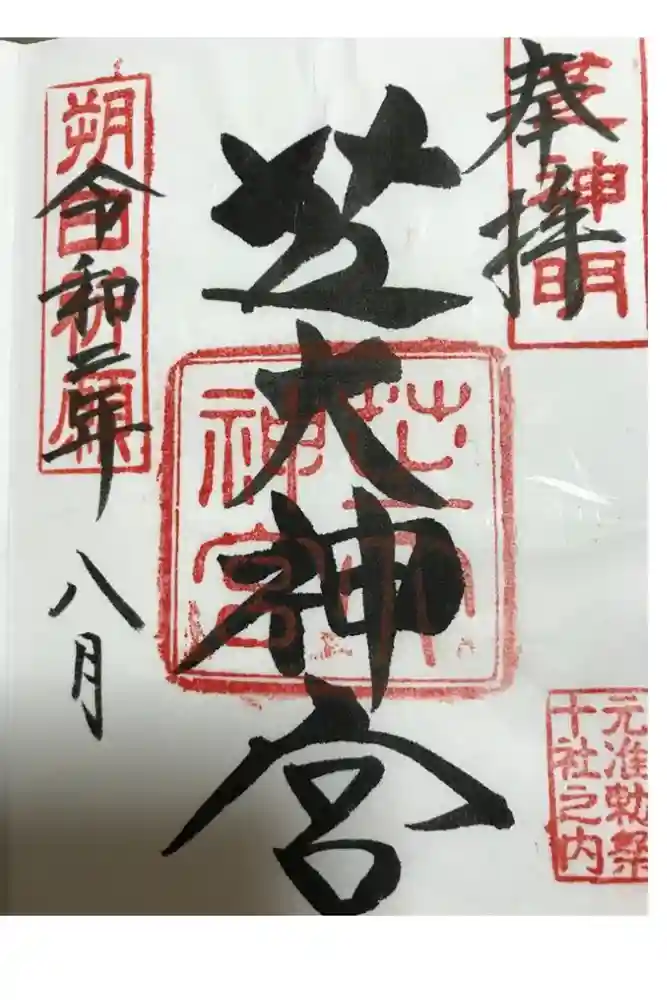 奉拝
芝神明
芝大神宮
芝大
神宮
元准勅祭
十社之内
朔日祈願
令和二年
八月